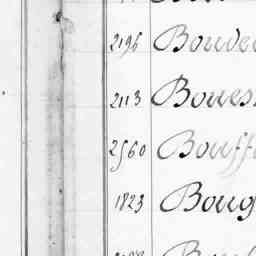 2196 Boude
2113 Boues
2560 Bouff
1823 Boug